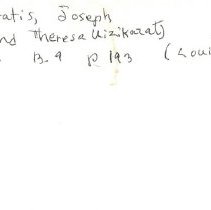 atis, Joseph
nd Theresa Uizikarat)
B. 9 p 193 (Loui